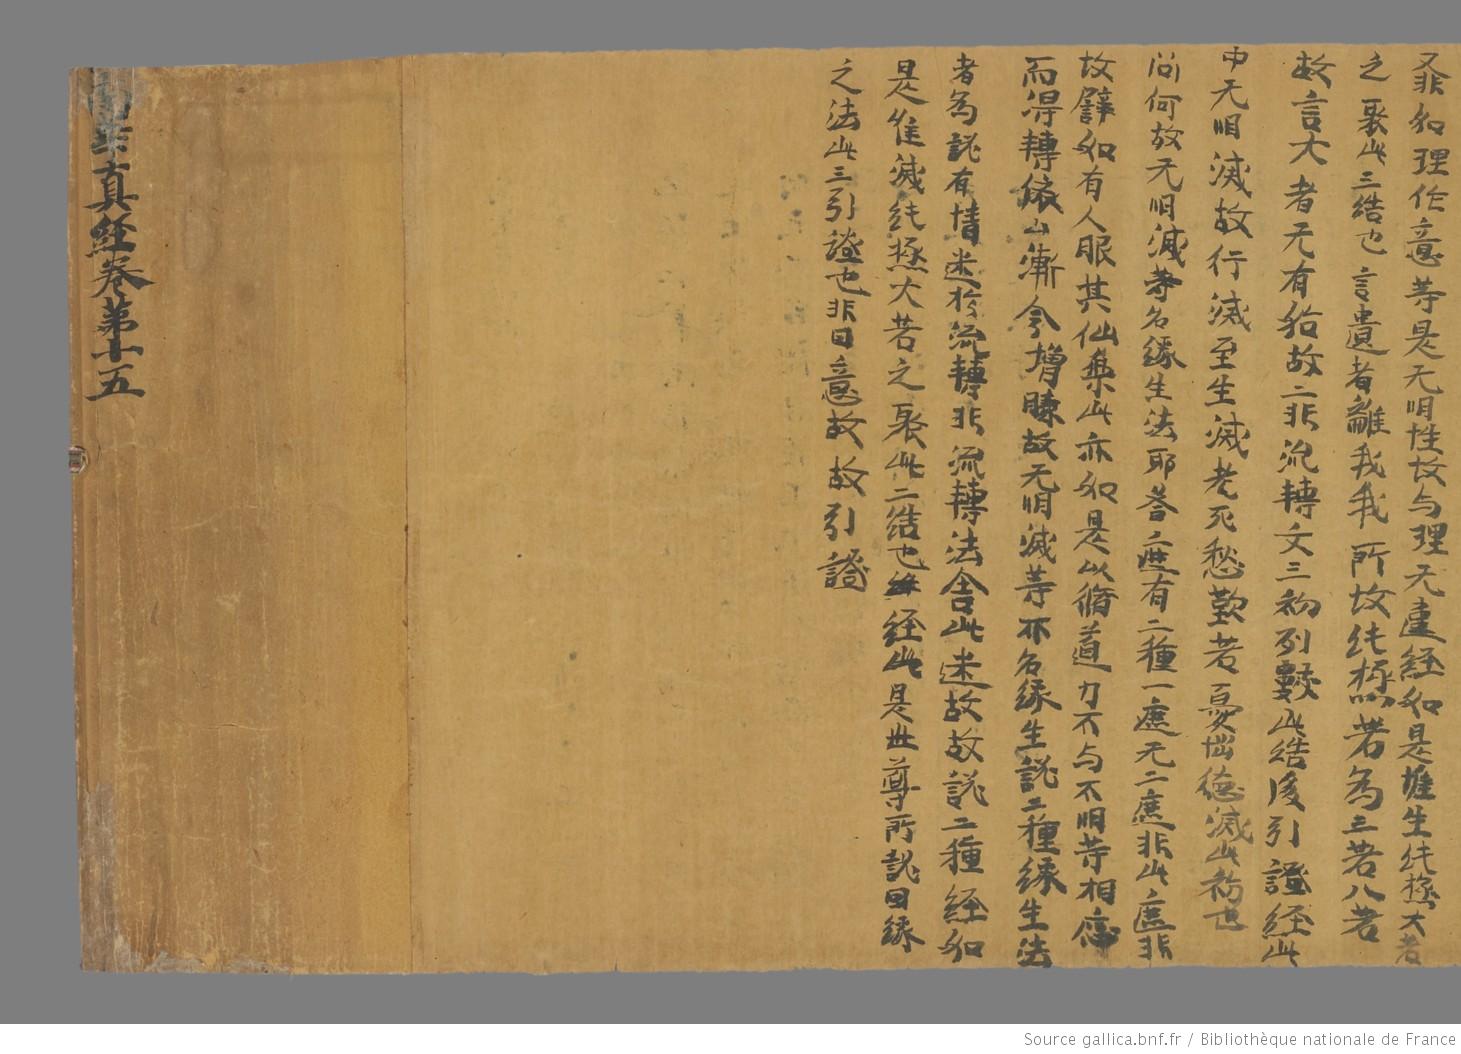 又非如理作意等是无明性故与理无違經如是堆生純極大者
之聚此三結也言遺者離我我所故純極苦為三苦八苦
故言大者无有始故二非流轉文三初列數此結後引證經此
中无明滅故行滅至生滅老死愁歎苦憂惱德滅此初也
問何故无明滅等名緣生法耶答二處有二種一處无二處非此處非
故譬如有人服其仙藥此亦如是以脩道力不与不明等相應
而得轉依山漸令增賺故无明滅等不名緣生說二種緣生法
者為說有情迷於流轉非流轉法含此迷故故說二種經如
是唯滅純極大苦之聚此二結也經此是世尊所說因緣
之法此三引證也非因意故故引證
南華真經卷第十五
Source gallica.bnf.fr / Bibliothèque nationale de France